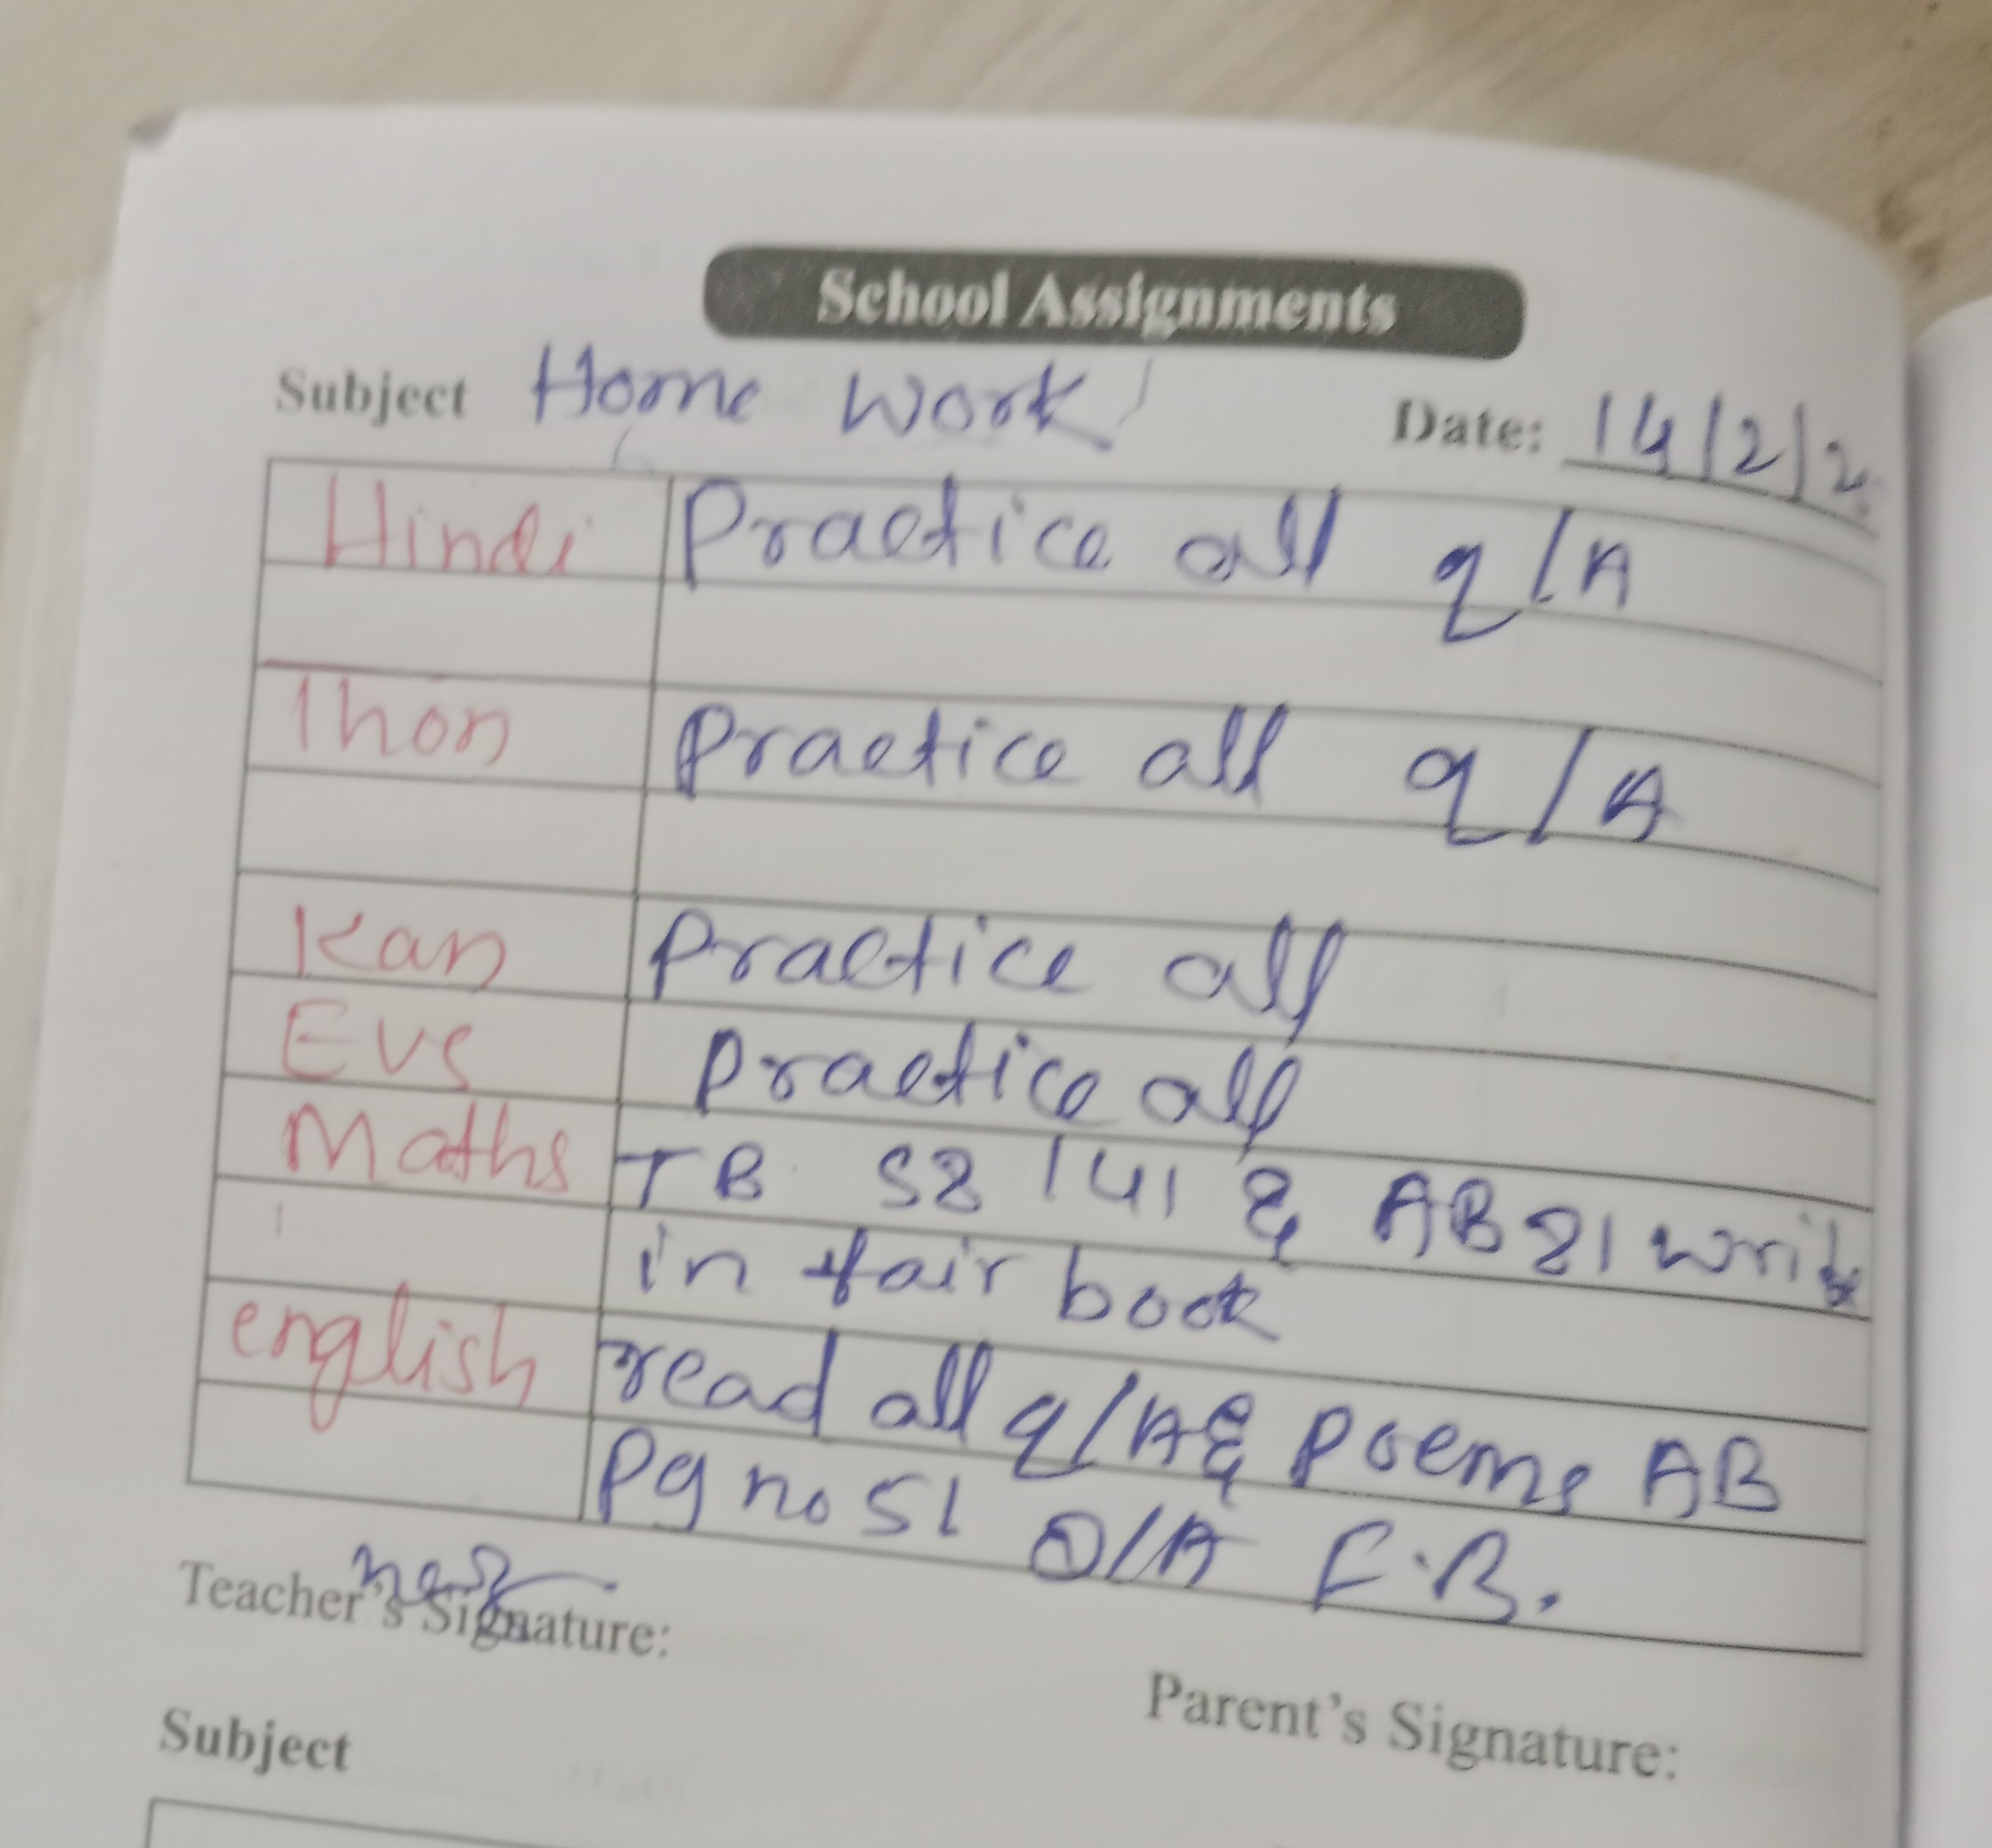 School Assignments
Subject Home Work Date: 14/2/2
Hindi Practice all q/A
Thon Practice all q/A
Kan Practice all
Evs Practice all
Maths TB 52 141 & AB 21 write
in fair book
english read all q/A & Poems AB
Pg no 51 Q/A F.B.
Teacher's Signature:
Parent's Signature:
Subject